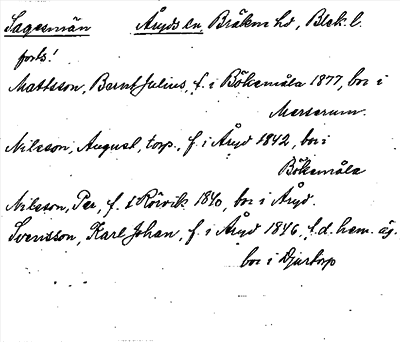 Sagesmän Åryds sn, Bräkne hd, Blek. l.
forts!
Mattsson, Bernt Julius, f. i Bökemåla 1877, bor i
Merserum.
Nilsson, August, torp., f. i Åryd 1842, bor i
Bökemåla
Nilsson, Per, f. i Rörvik 1840, bor i Åryd.
Svensson, Karl Johan, f. i Åryd 1846, f.d. hem. äg.
bor i Djurtorp